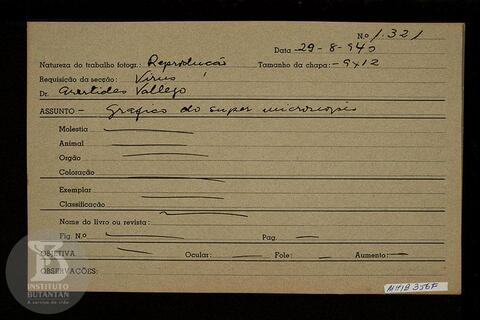 N.o 1.321
Data 29-8-940
Natureza do trabalho fotogr.: Reprodução Tamanho da chapa: - 9x12
Requisição da secção: Virus
Dr. Aristides Vallejo
ASSUNTO - Grafico do super microscopio
Molestia
Animal
Orgão
Coloração
Exemplar
Classificação
Nome do livro ou revista:
Fig. N.o Pag.
OBJETIVA Ocular: Fole: Aumento:
OBSERVAÇÕES:
INSTITUTO
BUTANTAN
A serviço da vida